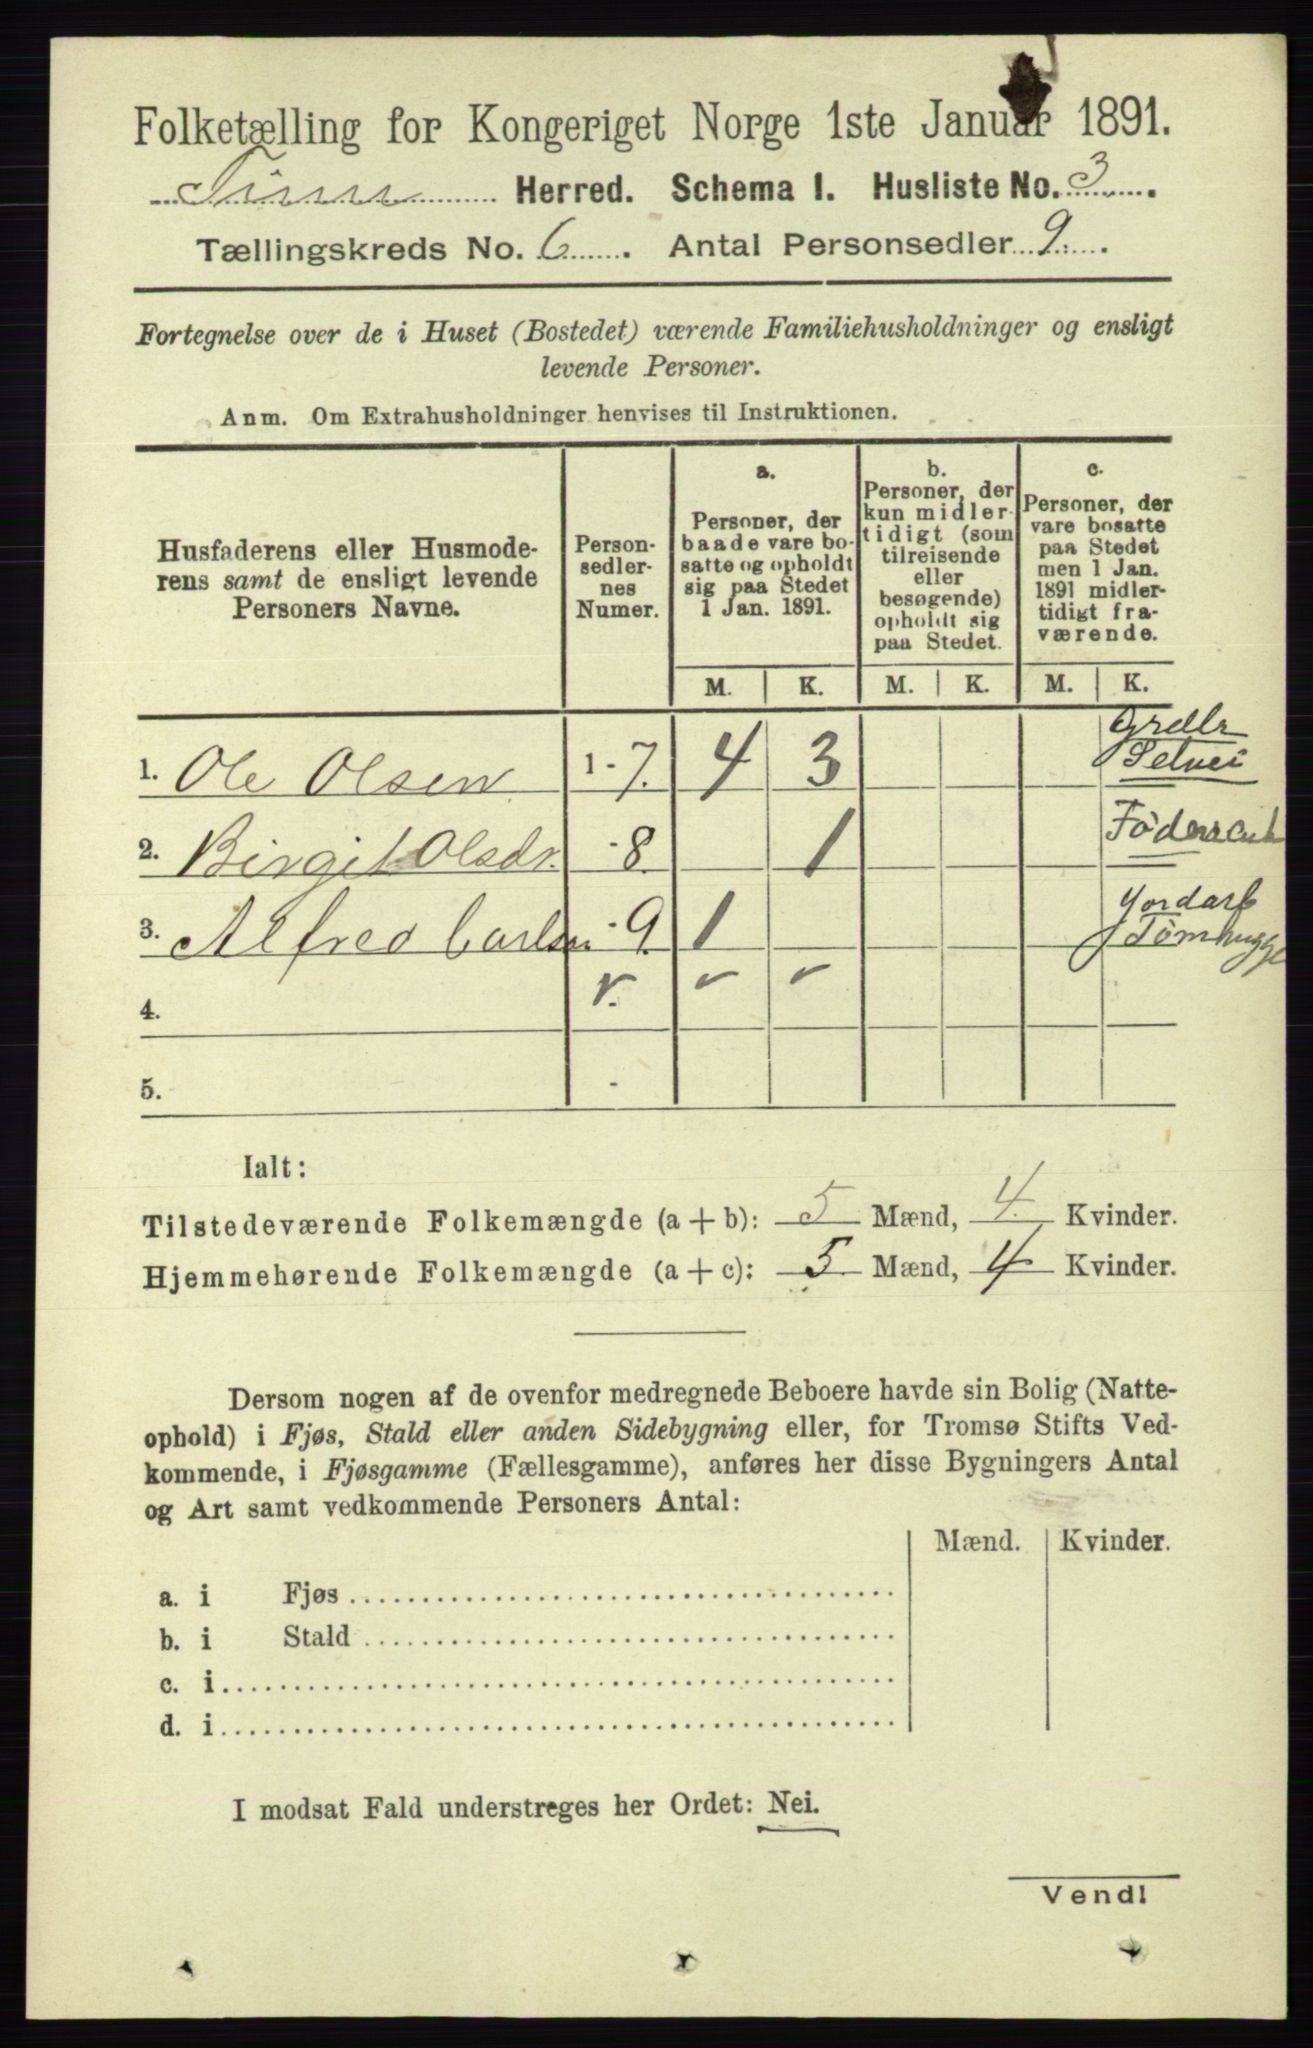 Folketælling for Kongeriget Norge 1ste Januar 1891.
Herred. Schema 1. Husliste No. 3.
Tællingskreds No. 6. Antal Personsedler 9.
Fortegnelse over de i Huset (Bostedet) værende Familiehusholdninger og ensligt
levende Personer.
Anm. Om Extrahusholdninger henvises til Instruktionen.
Husfaderens eller Husmode-
rens samt de ensligt levende
Personers Navne.
Person-
sedler-
nes
Numer.
a.
Personer, der
baade vare bo-
satte og opholdt
sig paa Stedet
1 Jan. 1891.
b.
Personer, der
kun midler-
tidigt (som
tilreisende
eller
besøgende)
opholdt sig
paa Stedet.
c.
Personer, der
vare bosatte
paa Stedet
men 1 Jan.
1891 midler-
tidigt fra-
værende.
M. K. M. K. M. K.
1. Ole Olsen 1 - 7. 4 3 Selvei
2. Birgit Olsdr. - 8. 1
3. Alfred Carlsen - 9. 1
4.
5. -
Ialt:
Tilstedeværende Folkemængde (a + b): 5 Mænd, 4 Kvinder.
Hjemmehørende Folkemængde (a + c): 5 Mænd, 4 Kvinder.
Dersom nogen af de ovenfor medregnede Beboere havde sin Bolig (Natte-
ophold) i Fjøs, Stald eller anden Sidebygning eller, for Tromsø Stifts Ved-
kommende, i Fjøsgamme (Fællesgamme), anføres her disse Bygningers Antal
og Art samt vedkommende Personers Antal:
Mænd. Kvinder.
a. i Fjøs
b. i Stald
c. i
d. i
I modsat Fald understreges her Ordet: Nei.
Vend!